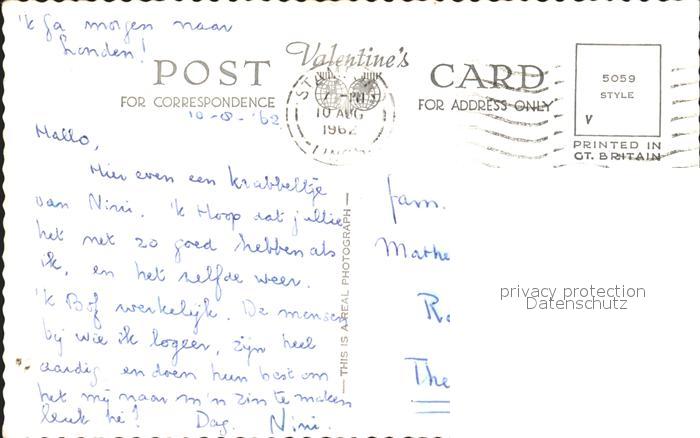 'k Ga morgen naar
Londen!
Valentine's
POST CARD
FOR CORRESPONDENCE
FOR ADDRESS ONLY
10-8-'62
10 AUG
1962
5059
STYLE
V
PRINTED IN
GT. BRITAIN
Hallo,
Hier even een krabbeltje
van Nini. 'k Hoop dat jullie
het net zo goed hebben als
ik, en het zelfde weer.
'k Bof werkelijk. De mensen
bij wie ik logeer, zijn heel
aardig en doen hun best om
het mij naar m'n zin te maken
leuk hè? Dag. Nini.
THIS IS A REAL PHOTOGRAPH
fam.
Mathe
R
The
privacy protection
Datenschutz